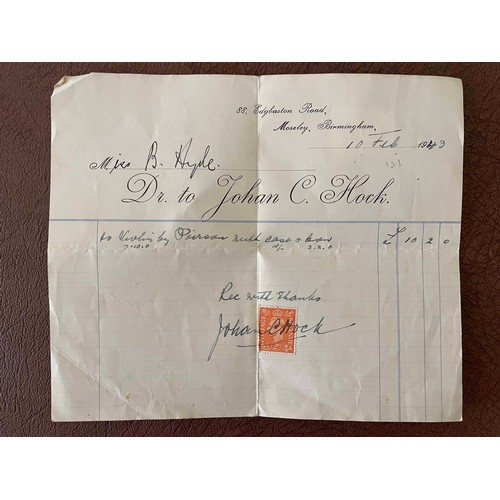 88, Edgbaston Road,
Moseley, Birmingham,
10 Feb 1943
Miss B. Hyde.
Dr. to Johan C. Hock.
to Violin by Pierson with case & bow £ 10 2 0
7.10.0 10/- 2.2.0
Rec with thanks
Johan C Hock